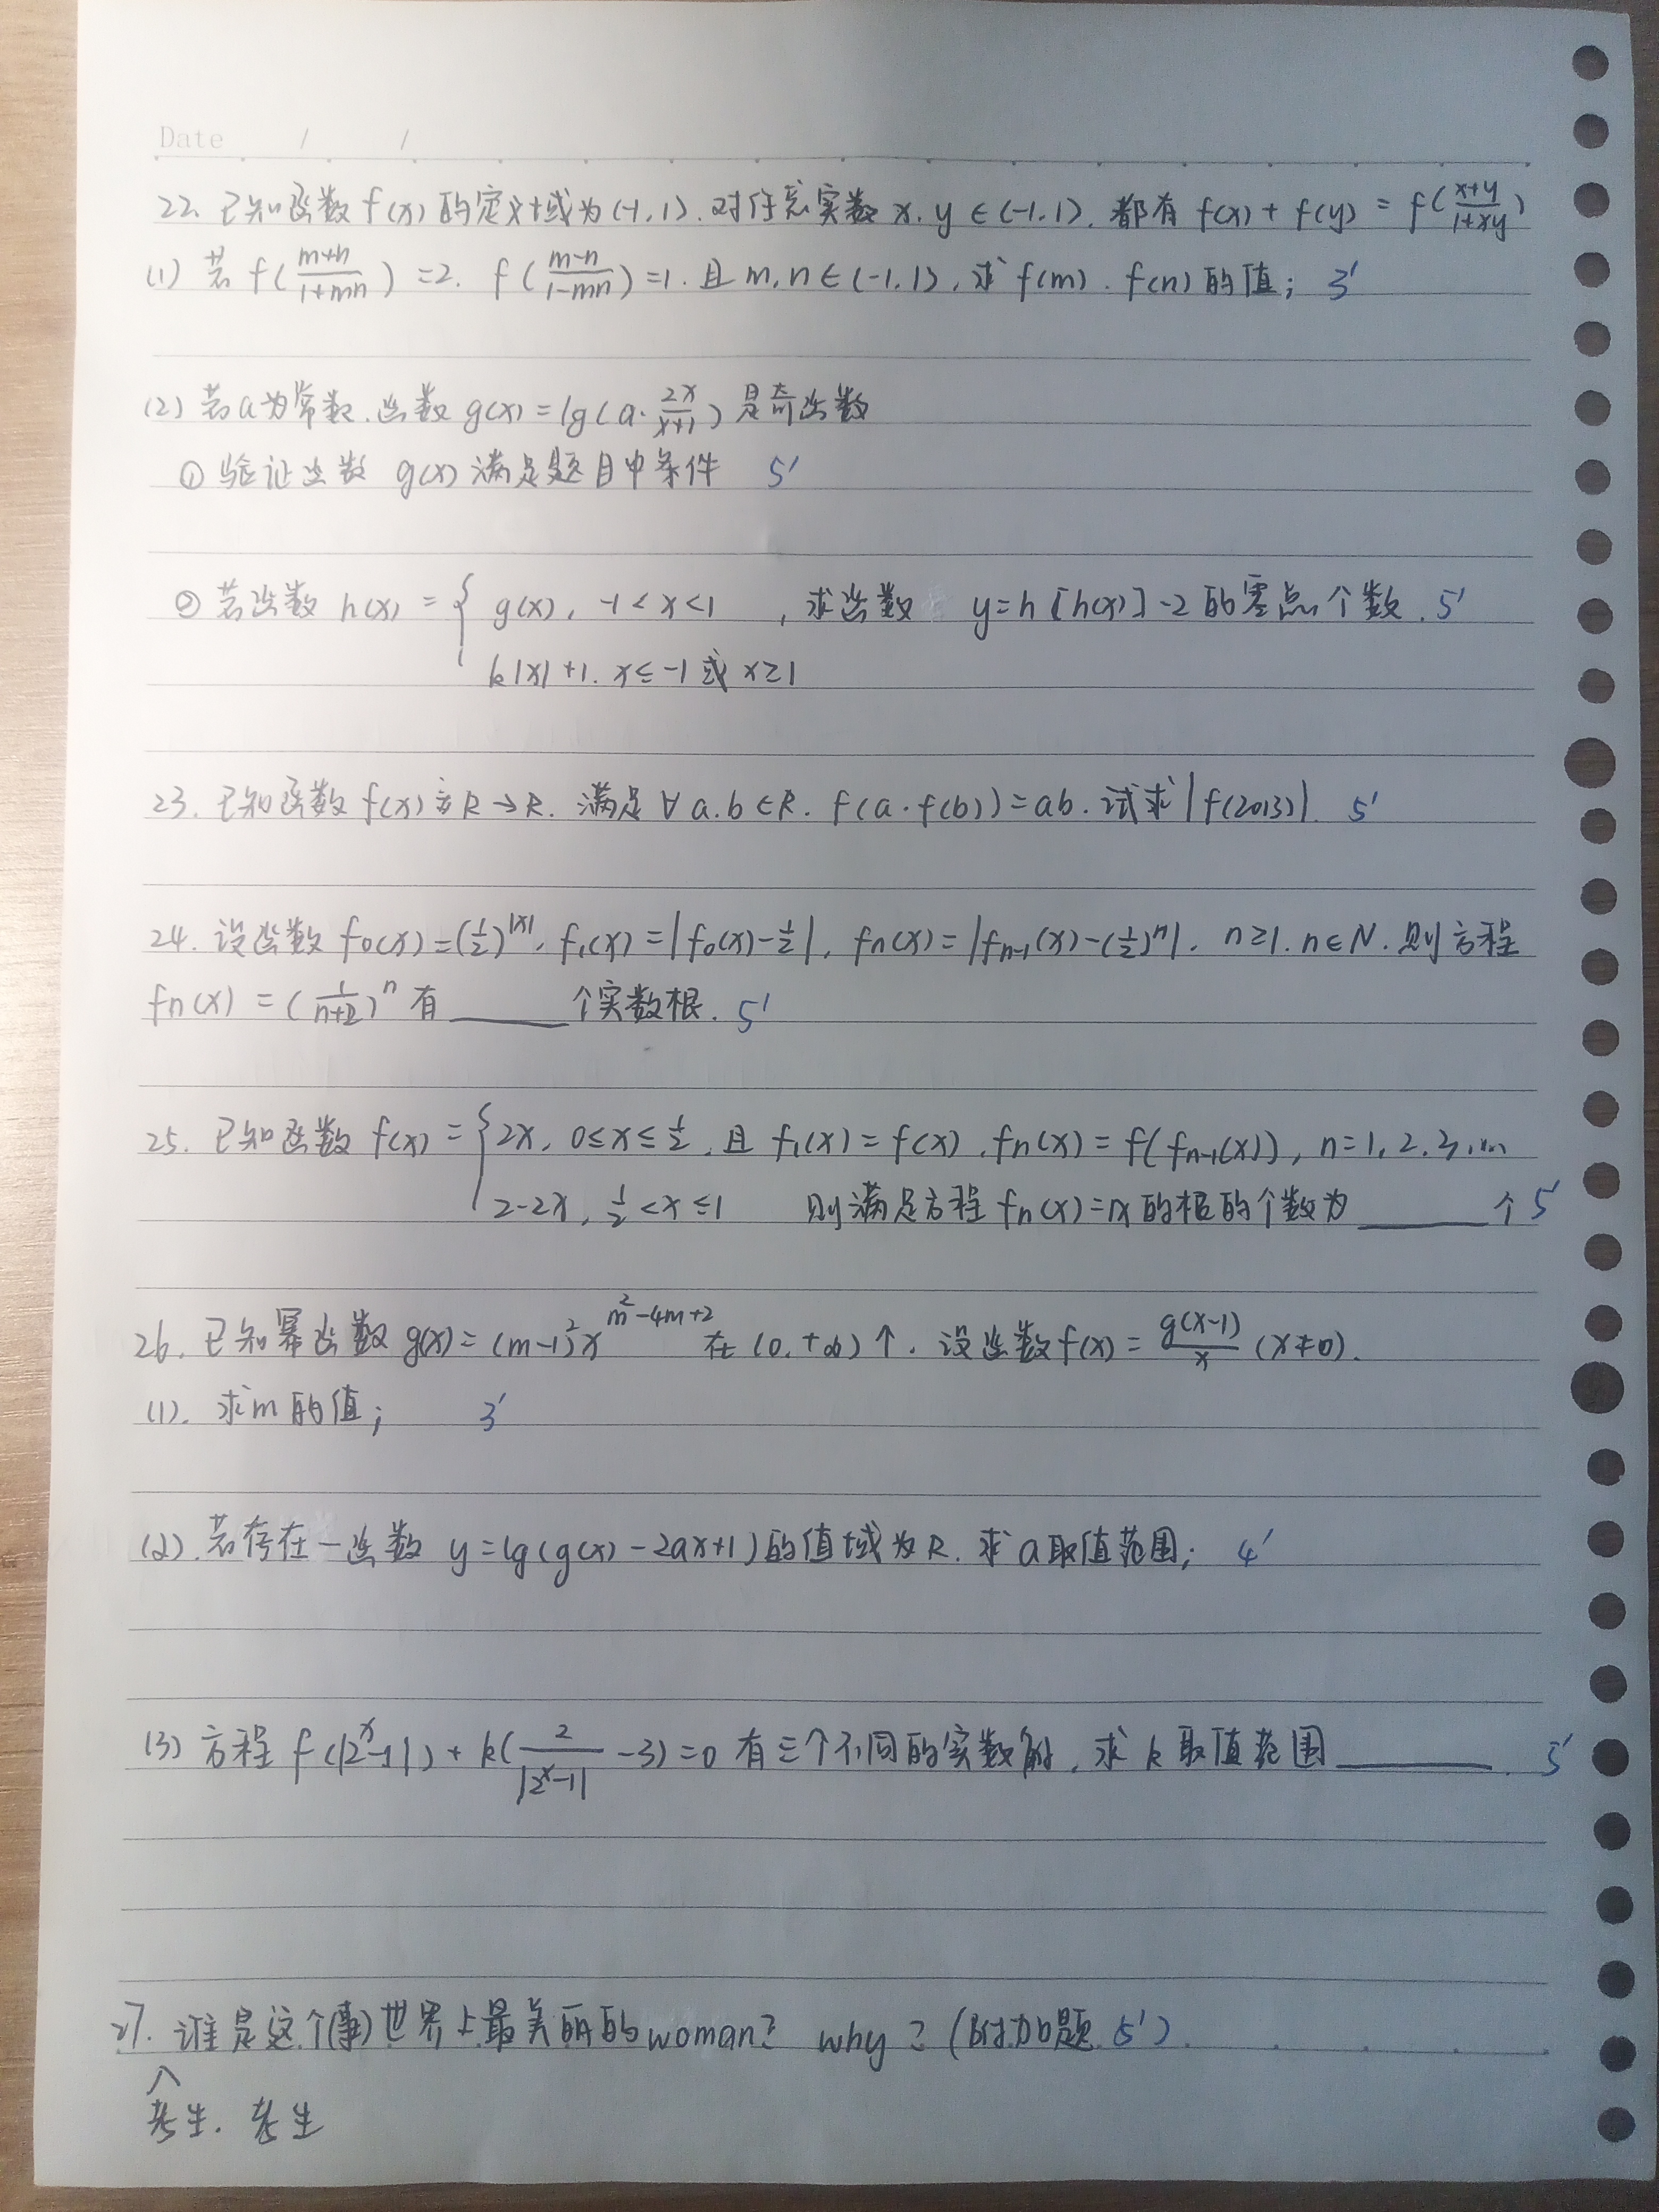 Date / /
22. 已知函数 f(x) 的定义域为 (-1,1). 对任意实数 x, y ∈ (-1,1). 都有 f(x) + f(y) = f(\frac{x+y}{1+xy})
(1) 若 f(\frac{m+n}{1+mn}) = 2. f(\frac{m-n}{1-mn}) = 1. 且 m, n ∈ (-1,1), 求 f(m). f(n) 的值; 3'
(2) 若 a 为常数. 函数 g(x) = lg(a·\frac{2x}{x+1}) 是奇函数
① 验证函数 g(x) 满足题目中条件 5'
② 若函数 h(x) = { g(x), -1 < x < 1 , 求函数 y = h[h(x)] - 2 的零点个数. 5'
k|x| + 1. x ≤ -1 或 x ≥ 1
23. 已知函数 f(x) 为 R → R. 满足 ∀ a.b ∈ R. f(a·f(b)) = ab. 试求 |f(2013)|. 5'
24. 设函数 f₀(x) = (\frac{1}{2})^{|x|}, f₁(x) = |f₀(x) - \frac{1}{2}|, fn(x) = |f_{n-1}(x) - (\frac{1}{2})^n|. n ≥ 1. n ∈ N. 则方程
fn(x) = (\frac{1}{n+2})^n 有 ____ 个实数根. 5'
25. 已知函数 f(x) = { 2x, 0 ≤ x ≤ \frac{1}{2}, 且 f₁(x) = f(x), fn(x) = f(f_{n-1}(x)), n = 1, 2, 3, ...
2 - 2x, \frac{1}{2} < x ≤ 1 则满足方程 fn(x) = x 的根的个数为 ____ 个 5'
26. 已知幂函数 g(x) = (m-1)² x^{m²-4m+2} 在 (0, +∞) ↑. 设函数 f(x) = \frac{g(x-1)}{x} (x ≠ 0).
(1). 求 m 的值; 3'
(2). 若存在一函数 y = lg(g(x) - 2ax + 1) 的值域为 R. 求 a 取值范围; 4'
(3) 方程 f(|2^x - 1|) + k(\frac{2}{|2^x - 1|} - 3) = 0 有三个不同的实数解, 求 k 取值范围 ____. 5'
27. 谁是这个(事)世界上最美丽的 woman? why? (附加题 5').
考生. 考生